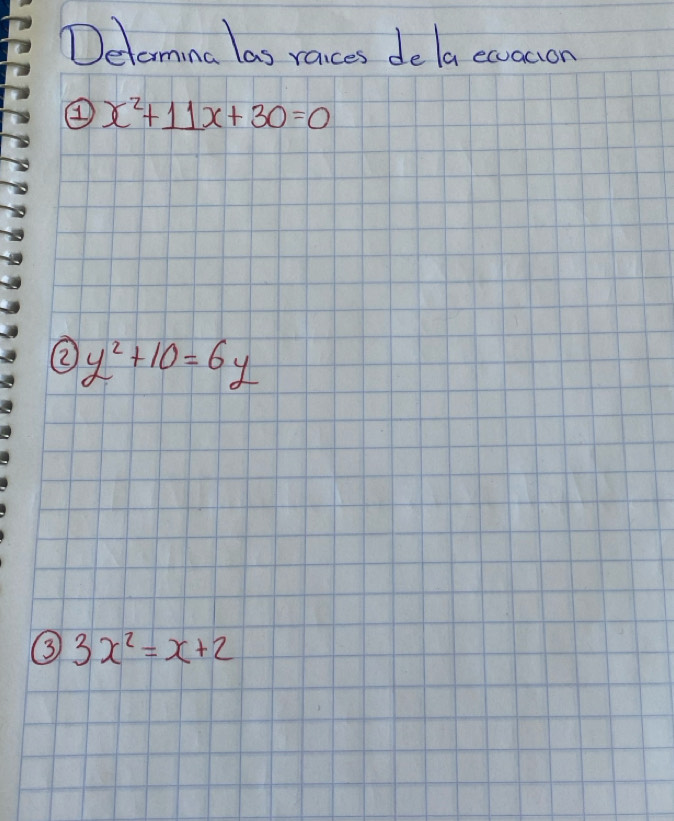 Determina las raices de la ecuacion
① x²+11x+30=0
② y²+10=6y
③ 3x²=x+2